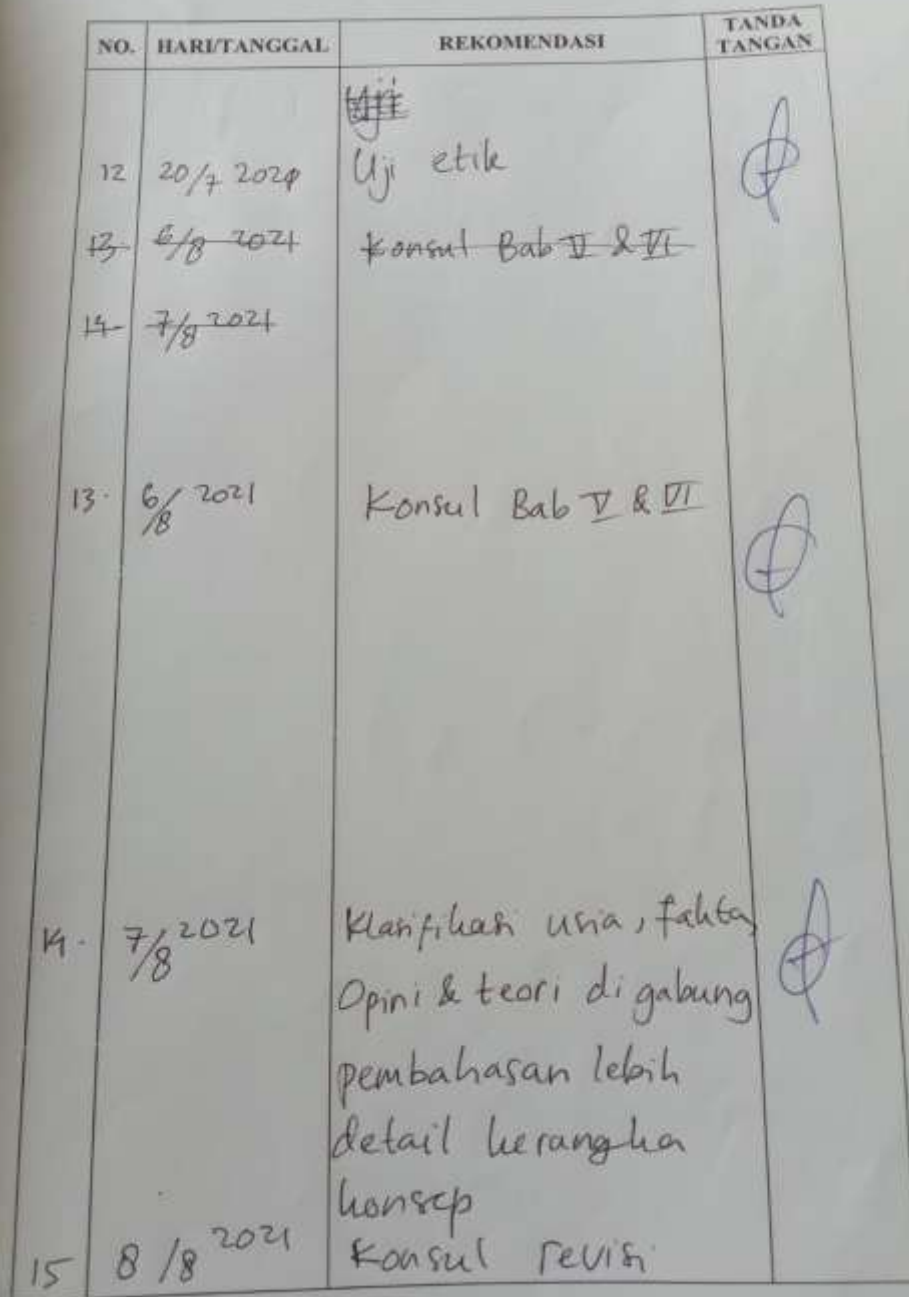 NO. HARI/TANGGAL REKOMENDASI TANDA TANGAN
Uji
12 20/7 2021 Uji etik
13 6/8 2021 Konsul Bab V & VI
14 7/8 2021
13. 6/8 2021 Konsul Bab V & VI
14. 7/8 2021 Klasifikasi usia, fakta
Opini & teori di gabung
pembahasan lebih
detail kerangka
konsep
15 8/8 2021 Konsul revisi